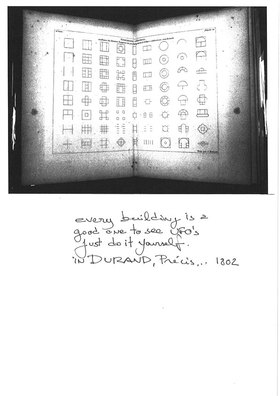 every building is a
good one to see UFO's
just do it yourself.
in DURAND, Précis,.. 1802